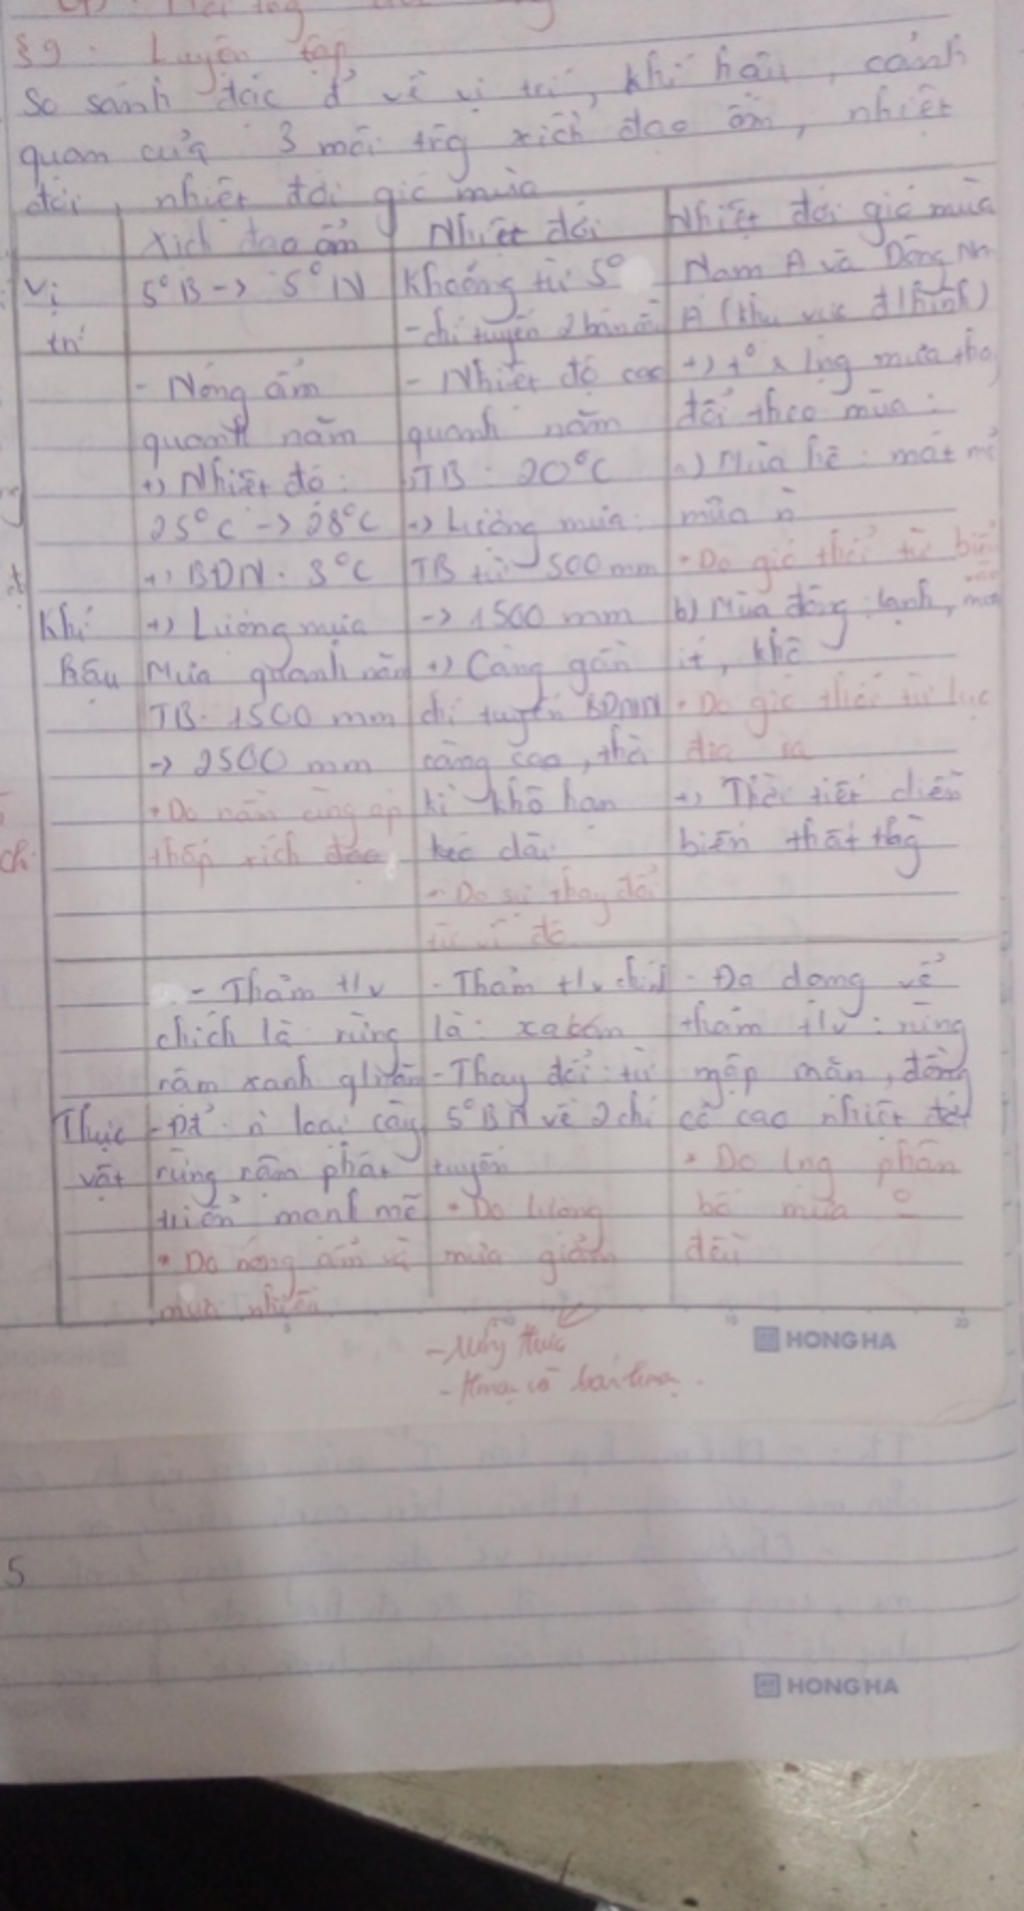 §9. Luyện tập
So sánh đặc đ' về vị trí, khí hậu, cảnh
quan của 3 môi trg xích đạo ẩm, nhiệt
đới, nhiệt đới gió mùa
Xích đạo ẩm
Nhiệt đới
Nhiệt đới gió mùa
Vị
trí
5°B -> 5°N
Khoảng từ 5°
- chí tuyến 2 bán
Nam Á và Đông Nam
Á (khu vực đ/hình)
Khí
hậu
- Nóng ẩm
quanh năm
+) Nhiệt độ:
25°C -> 28°C
+) BDN: 3°C
+) Lượng mưa
Mưa quanh năm
TB: 1500 mm
-> 2500 mm
• Do nằm cùng áp
thấp xích đạo
- Nhiệt độ cao
quanh năm
TB: 20°C
+) Lượng mưa:
TB từ 500 mm
-> 1500 mm
+) Càng gần
chí tuyến BDNN
càng cao, thời
kì khô hạn
kéo dài
- Do sự thay đổi
từ vĩ độ
+) t° & lng mưa thay
đổi theo mùa:
a) Mùa hè: mát mẻ
mưa n
• Do gió thổi từ biển
b) Mùa đông: lạnh, mưa
ít, khô
• Do gió thổi từ lục
địa ra
+) Thời tiết diễn
biến thất thg
Thực
vật
- Thảm t/v
chính là rừng
rậm xanh
- n loài cây
rừng rậm phát
triển mạnh mẽ
• Do nóng ẩm và
mưa nhiều
- Thảm t/v chính
là: xavan
- Thay đổi: từ
5°BN về 2 chí
tuyến
• Do lượng
mưa giảm
- Đa dạng về
thảm t/v: rừng
ngập mặn, đồng
cỏ cao nhiệt đới
• Do lng phân
bố mưa
đều
HONG HA
5
HONG HA